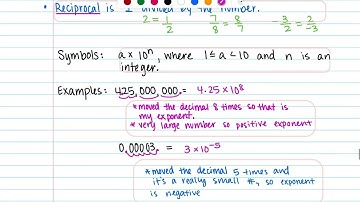 • Reciprocal is 1 divided by the number.
2 = 1/2    7/8 = 8/7    -3/2 = 2/-3
Symbols: a x 10ⁿ, where 1 ≤ a < 10 and n is an
integer.
Examples: 425,000,000. = 4.25 x 10⁸
*moved the decimal 8 times so that is
my exponent.
*very large number so positive exponent
0.00003. = 3 x 10⁻⁵
*moved the decimal 5 times and
it's a really small #, so exponent
is negative